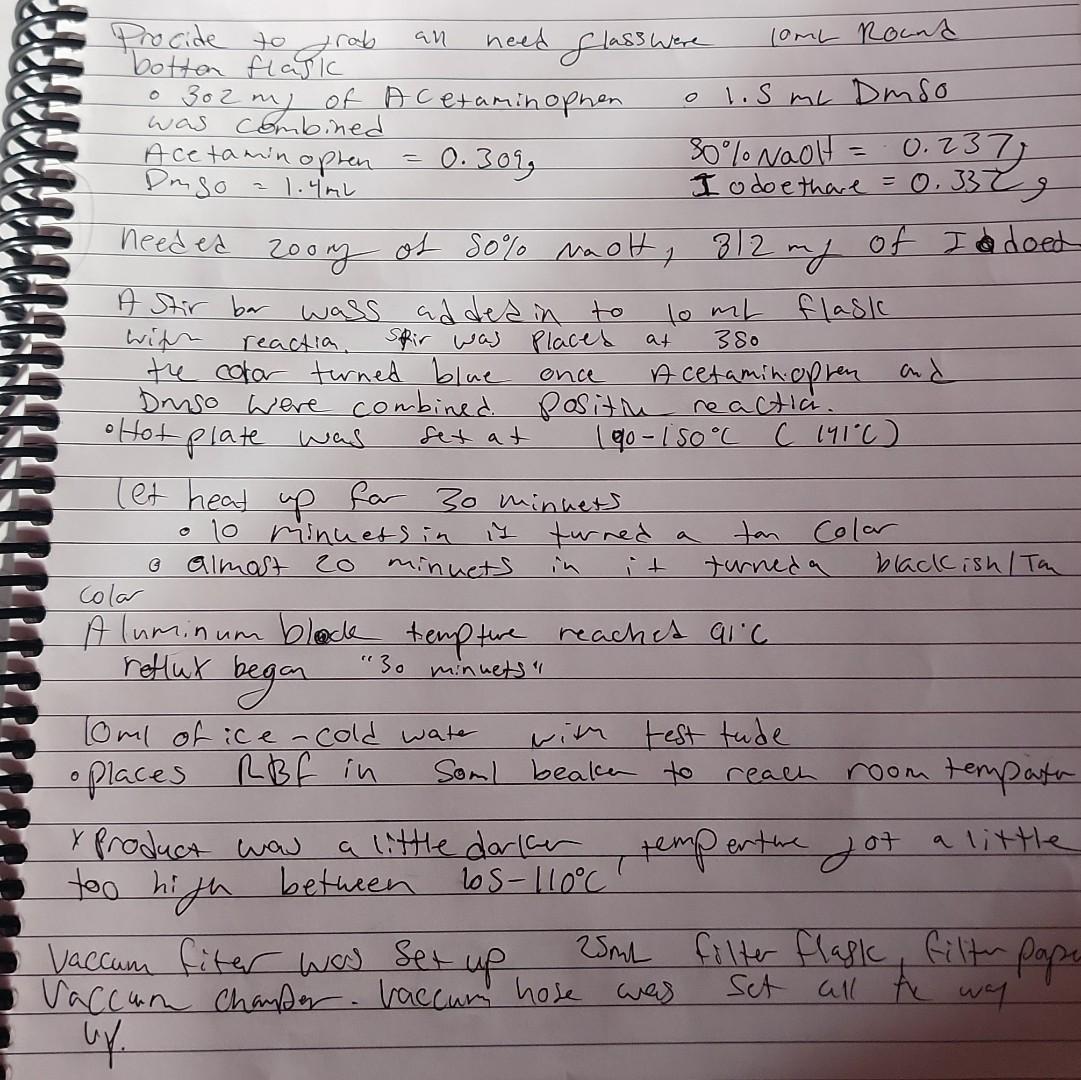 Procide to grab all need glasswere 10mL Round
botton flask
• 302 mg of Acetaminophen • 1.5 mL DMSO
was combined
Acetaminopren = 0.309g 80% NaOH = 0.237g
DmSo = 1.4mL Iodoethane = 0.332g
needed 200mg of 80% NaOH, 312 mg of Iodoed
A Stir bar wass added in to 10 mL flask
with reaction. Stir was placed at 380
the color turned blue once Acetaminopren and
DmSO were combined. Positiv reaction.
• Hot plate was set at 190-150°C (141°C)
let heat up for 30 minuets
• 10 minuets in it turned a tan color
• almost 20 minuets in it turned a blackish/Tan
color
Aluminum block tempture reached 91°C
reflux began "30 minuets"
10ml of ice-cold water with test tude
• places RBF in 50ml beaker to reach room tempatu
* Product was a little darker, tempertue got a little
too high between 105-110°C
Vaccum fiter was set up 25mL filter flask, filter pape
Vaccum chamber. Vaccum hose was set all the way
up.